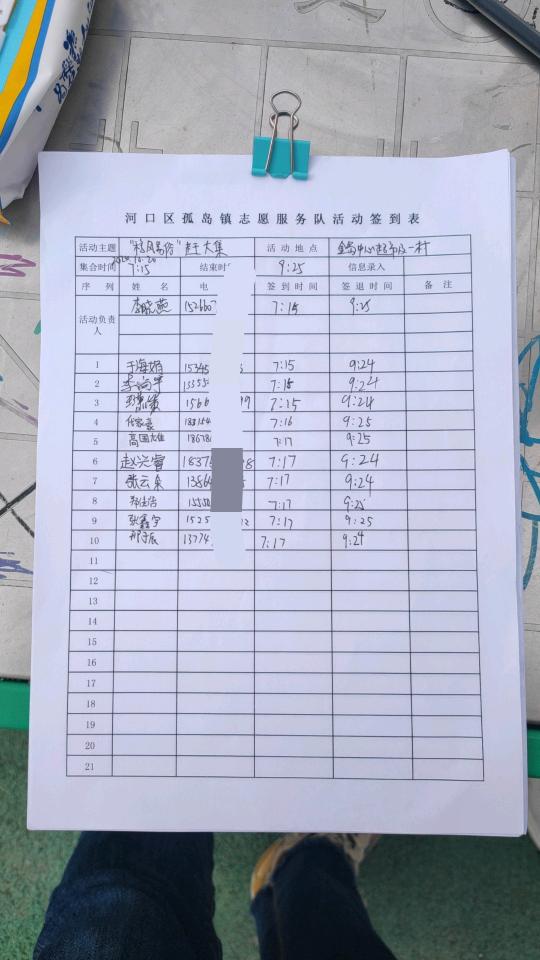 河口区孤岛镇志愿服务队活动签到表
活动主题 "移风易俗"赶大集 活动地点
集合时间 7:15 结束时 9:25 信息录入
序列 姓名 电 签到时间 签退时间 备注
活动负责人 李晓燕 152660 7:15 9:25
1 于海娟 15345 7:15 9:24
2 李尚宇 13555 7:15 9:24
3 1566 7:15 9:24
4 183154 7:16 9:25
5 高国雄 18678 7:17 9:25
6 赵兴睿 1837 8 7:17 9:24
7 张云朵 13864 7:17 9:24
8 15550 7:17 9:25
9 张鑫宇 1525 2 7:17 9:25
10 邢子辰 13774 7:17 9:24
11
12
13
14
15
16
17
18
19
20
21